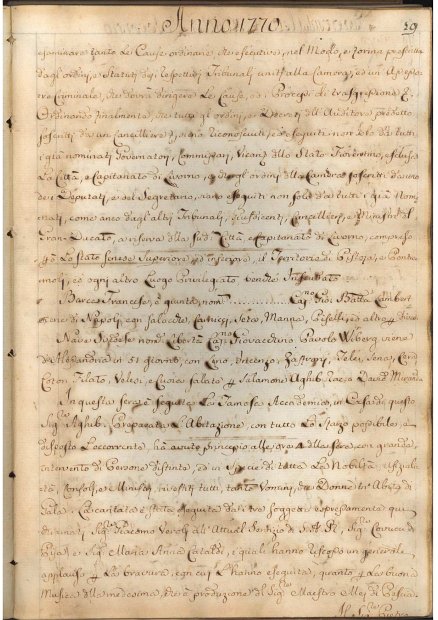 Anno 1770
59
esaminare tanto le Cause ordinarie che esecutive, nel Modo, e forma prescritta
dagli ordini, e Statuti dei respettivi Tribunali uniti alla Camera, ed un Assesso
re Criminale, che dovrà dirigere le Cause, ed i Processi di trasgressione
Ordinando finalmente, che tutti gli ordini, e Decreti dell Auditore predetto
soscritti da un Cancelliere, siano riconosciuti, ed eseguiti non solo da tutti
i già nominati Governatori, Commissari, Vicari dello Stato Fiorentino, esclusa
La Città, e Capitanato di Livorno, e degli ordini della Camera soscritti da uno
dei Deputati, e del Segretario, siano eseguiti non solo da tutti i già Nomi
nati, come anco dagli altri Tribunali, Giusdicenti, Cancellieri, e Ministri del
Gran-Ducato, a riserva della sud. Città, e Capitanato di Livorno, compreso
Lo Stato Senese Superiore, ed inferiore, il Territorio di Pistoja, e Pontre
moli, ed ogni altro Luogo Privilegiato benche Infeudato
Barca Francese, nom. Cap. Gio: Batta Lambert
viene di Napoli, con Salacche, Seta, Manna, Piselli, ed altro
Nave Svedese nom. Liberta Cap. Giovacchino Pavolo Wiberg viene
d'Alessandria in 51 giorni, con Lino, Incenzo, Zaffrani, Telej, Sena,
Coton Filato, e Cuoia salato Salamone Aghib David Miranda
In questa sera è seguita La Famosa Accademia, in Casa di questo
Sig. Aghib. Preparata L'Abitazione con tutto Lo sfarzo possibile, e
disposto L'occorrente, ha avuto principio alle ore 4 della sera con grande
intervento di Persone distinte, ed in specie di tutta La Nobiltà, Ufizia
lità, Consoli, e Ministri, vestiti tutti, tanto Uomini, che Donne in Abito di
Gala. La cantata è stata eseguita da tre soggetti espressamente qui
chiamati, Sig. Giacomo Veroli all'Attual Servizio di S.A.R., Sig.
e Sig. Maria Anna Cataldi, i quali hanno riscosso un generale
applauso La bravura, con cui L'hanno eseguita, quanto La buona
Musica della medesima, che è produzione del Sig. Maestro di Pescia